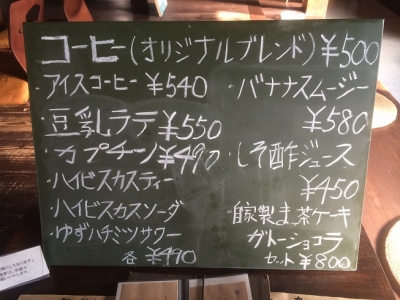 コーヒー(オリジナルブレンド)¥500
アイスコーヒー ¥540
・豆乳ラテ ¥550
・カプチーノ ¥490
・ハイビスカスティー
・ハイビスカスソーダ
・ゆずハチミツサワー
各 ¥490
・バナナスムージー
¥580
・しそ酢ジュース
¥450
・自家製まっ茶ケーキ
ガトーショコラ
セット ¥800